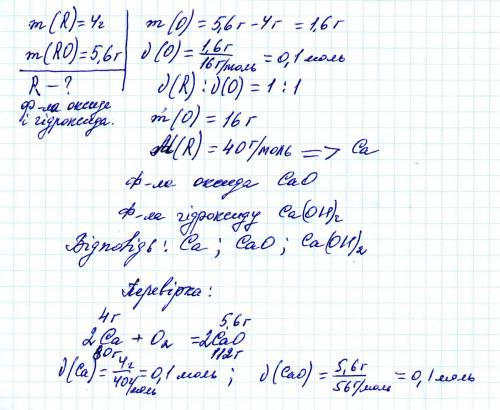 m(R)=4г
m(RO)=5,6г
R – ?
ф-ла оксиду
і гідроксида.
m(O) = 5,6г – 4г = 1,6г
ν(O) = 1,6г / 16г/моль = 0,1 моль
ν(R) : ν(O) = 1 : 1
m(O) = 16г
M(R) = 40г/моль => Ca
ф-ла оксида CaO
ф-ла гідроксиду Ca(OH)₂
Відповідь: Ca ; CaO ; Ca(OH)₂
Перевірка:
4г 5,6г
2Ca + O₂ = 2CaO
80г 112г
ν(Ca) = 4г / 40г/моль = 0,1 моль ; ν(CaO) = 5,6г / 56г/моль = 0,1 моль